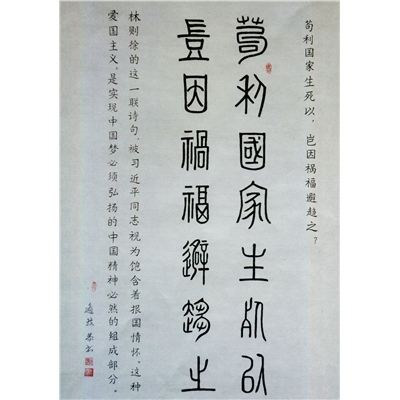 苟利国家生死以，岂因祸福避趋之？
苟利國家生死以
豈因禍福避趨之
林则徐的这一联诗句，被习近平同志视为饱含着报国情怀。这种
爱国主义，是实现中国梦必须弘扬的中国精神必然的组成部分。